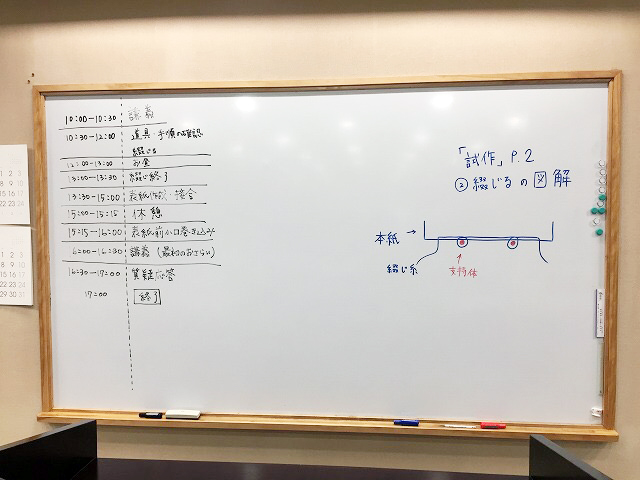 10:00-10:30 講義
10:30-12:00 道具・手順の確認
綴じる
12:00-13:00 お昼
13:00-13:30 綴じ終了
13:30-15:00 表紙 接合
15:00-15:15 休憩
15:15-16:00 表紙前小口巻き込み
16:00-16:30 講義(最初のおさらい)
16:30-17:00 質疑応答
17:00 終了
「試作」P.2
② 綴じるの図解
本紙→
綴じ糸
支持体